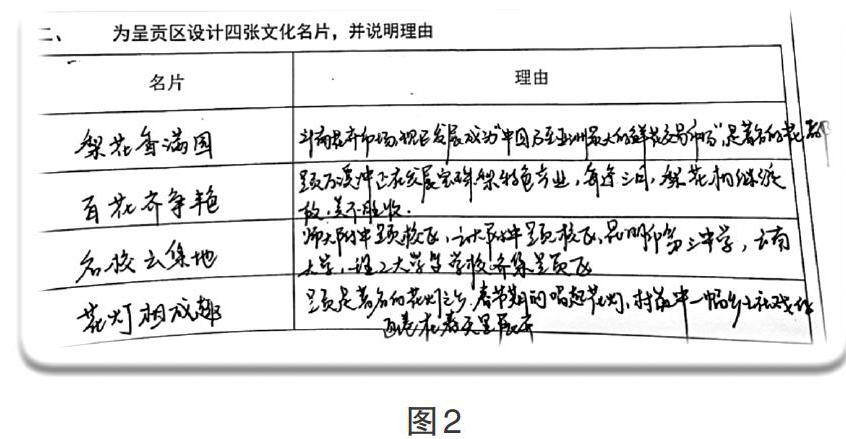 二、 为呈贡区设计四张文化名片，并说明理由
名片 理由
梨花香满园 斗南花卉市场,现已发展成为"中国乃至亚洲最大的鲜花交易市场",是著名的花都
百花齐争艳 呈贡万溪冲正在发展宝珠梨特色产业,每逢三月,梨花相继绽
放,美不胜收.
名校云集地 师大附中呈贡校区,云大附中呈贡校区,昆明市第三中学,云南
大学,理工大学等学校齐集呈贡区
花灯相成趣 呈贡是著名的花灯之乡.春节期间唱起花灯,村落中一幅乡土社戏
画卷在春天里展开
图2